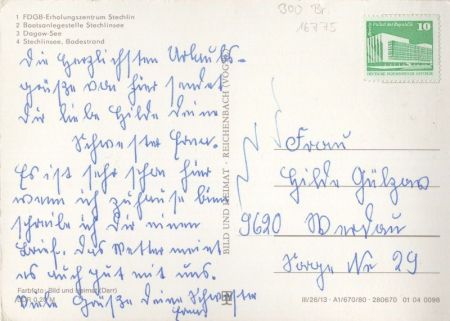 1 FDGB-Erholungszentrum Stechlin
2 Bootsanlegestelle Stechlinsee
3 Dagow-See
4 Stechlinsee, Badestrand
Die herzlichsten Urlaubs-
grüße von hier sendet
Dir liebe Hilde Deine
Schwester Erna.
Es ist sehr schön hier
wenn ich zuhause bin
schreibe ich Dir einen
Brief. Das Wetter meint
es auch gut mit uns.
Viele Grüße Deine Schwester
Erna
Farbfoto: Bild und Heimat (Darr)
DDR 0,25 M
BILD UND HEIMAT - REICHENBACH (VOGTL)
300 Br.
16775
Palast der Republik
10
DEUTSCHE DEMOKRATISCHE REPUBLIK
Frau
Hilde Gülzow
9620 Werdau
Sorge Nr 29
III/26/13 - A1/670/80 - 280670 01 04 0098